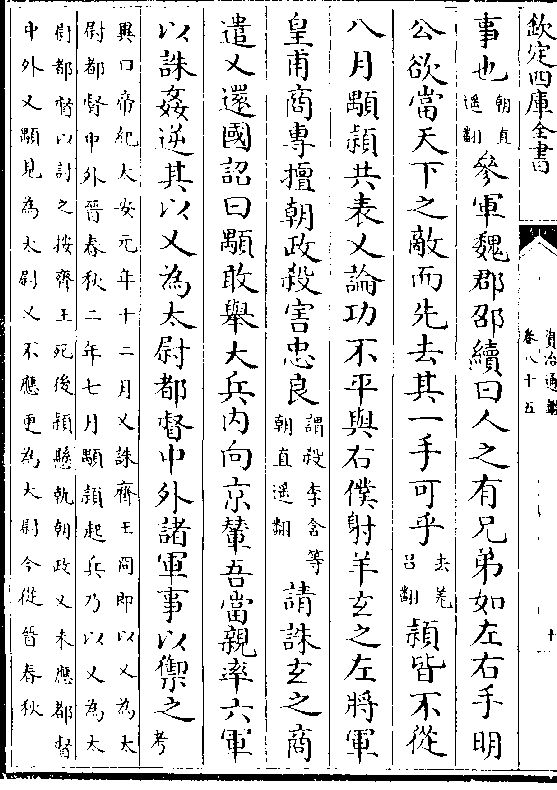 欽定四庫全書
資治通鑑
卷八十五
十
事也朝直
遥翻參軍魏郡邵續曰人之有兄弟如左右手明
公欲當天下之敵而先去其一手可乎去羌
吕翻頴皆不從
八月顒頴共表乂論功不平與右僕射羊玄之左將軍
皇甫商專擅朝政殺害忠良謂殺李含等
朝直遥翻請誅玄之商
遣乂還國詔曰顒敢舉大兵内向京輦吾當親率六軍
以誅姦逆其以乂為太尉都督中外諸軍事以禦之考
異曰帝紀太安元年十二月乂誅齊王冏即以乂為太
尉都督中外晉春秋二年七月顒頴起兵乃以乂為太
尉都督以討之按齊王死後頴懸執朝政乂未應都督
中外又顒見為太尉乂不應更為太尉今從晉春秋